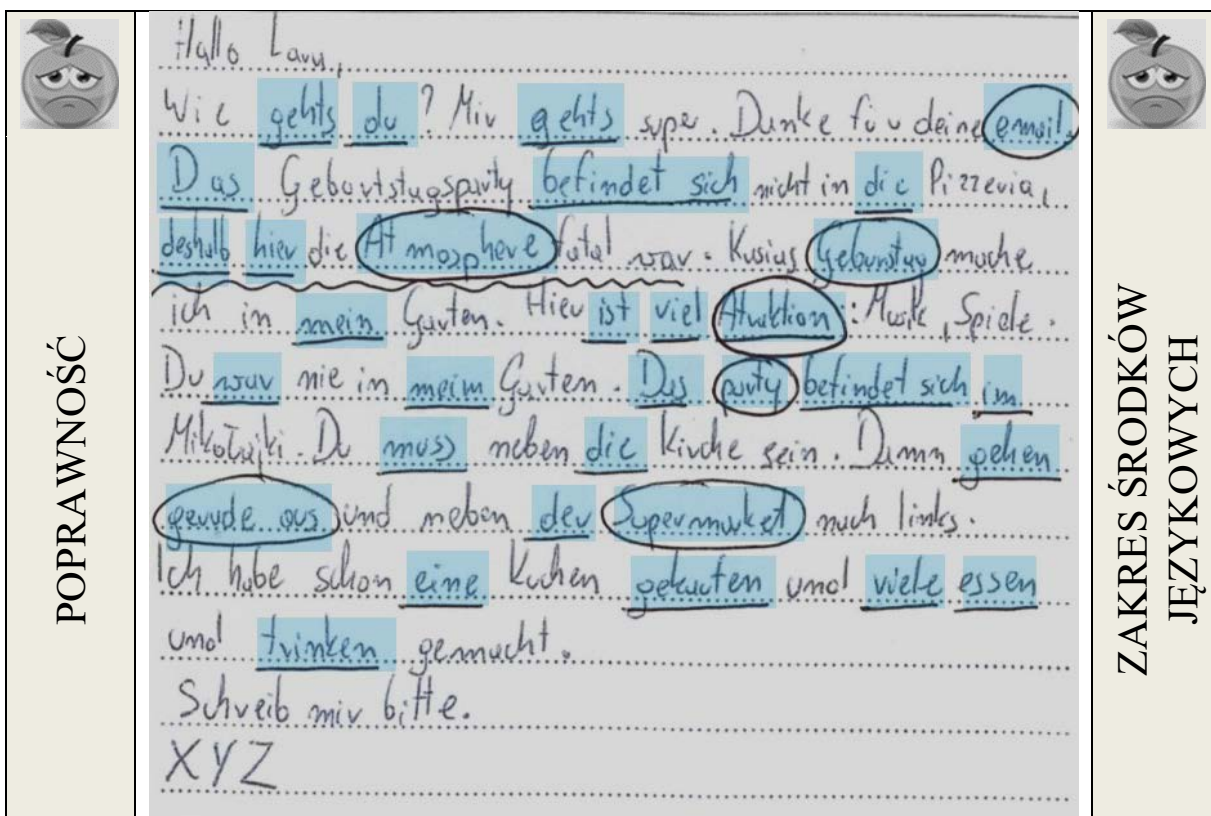 POPRAWNOŚĆ
Hallo Lara,
Wie gehts du? Mir gehts super. Danke für deine email.
Das Gebortstagsparty befindet sich nicht in die Pizzeria,
deshalb hier die Atmosphere fatal war. Kasias Geburstag mache
ich in mein Garten. Hier ist viel Atraktion: Musik, Spiele.
Du war nie in meim Garten. Das party befindet sich im
Mikołajki. Du muss neben die Kirche sein. Dann gehen
gerade aus und neben der Supermarket nach links.
Ich habe schon eine Kuchen gekauten und viele essen
und trinken gemacht.
Schreib mir bitte.
XYZ
ZAKRES ŚRODKÓW
JĘZYKOWYCH